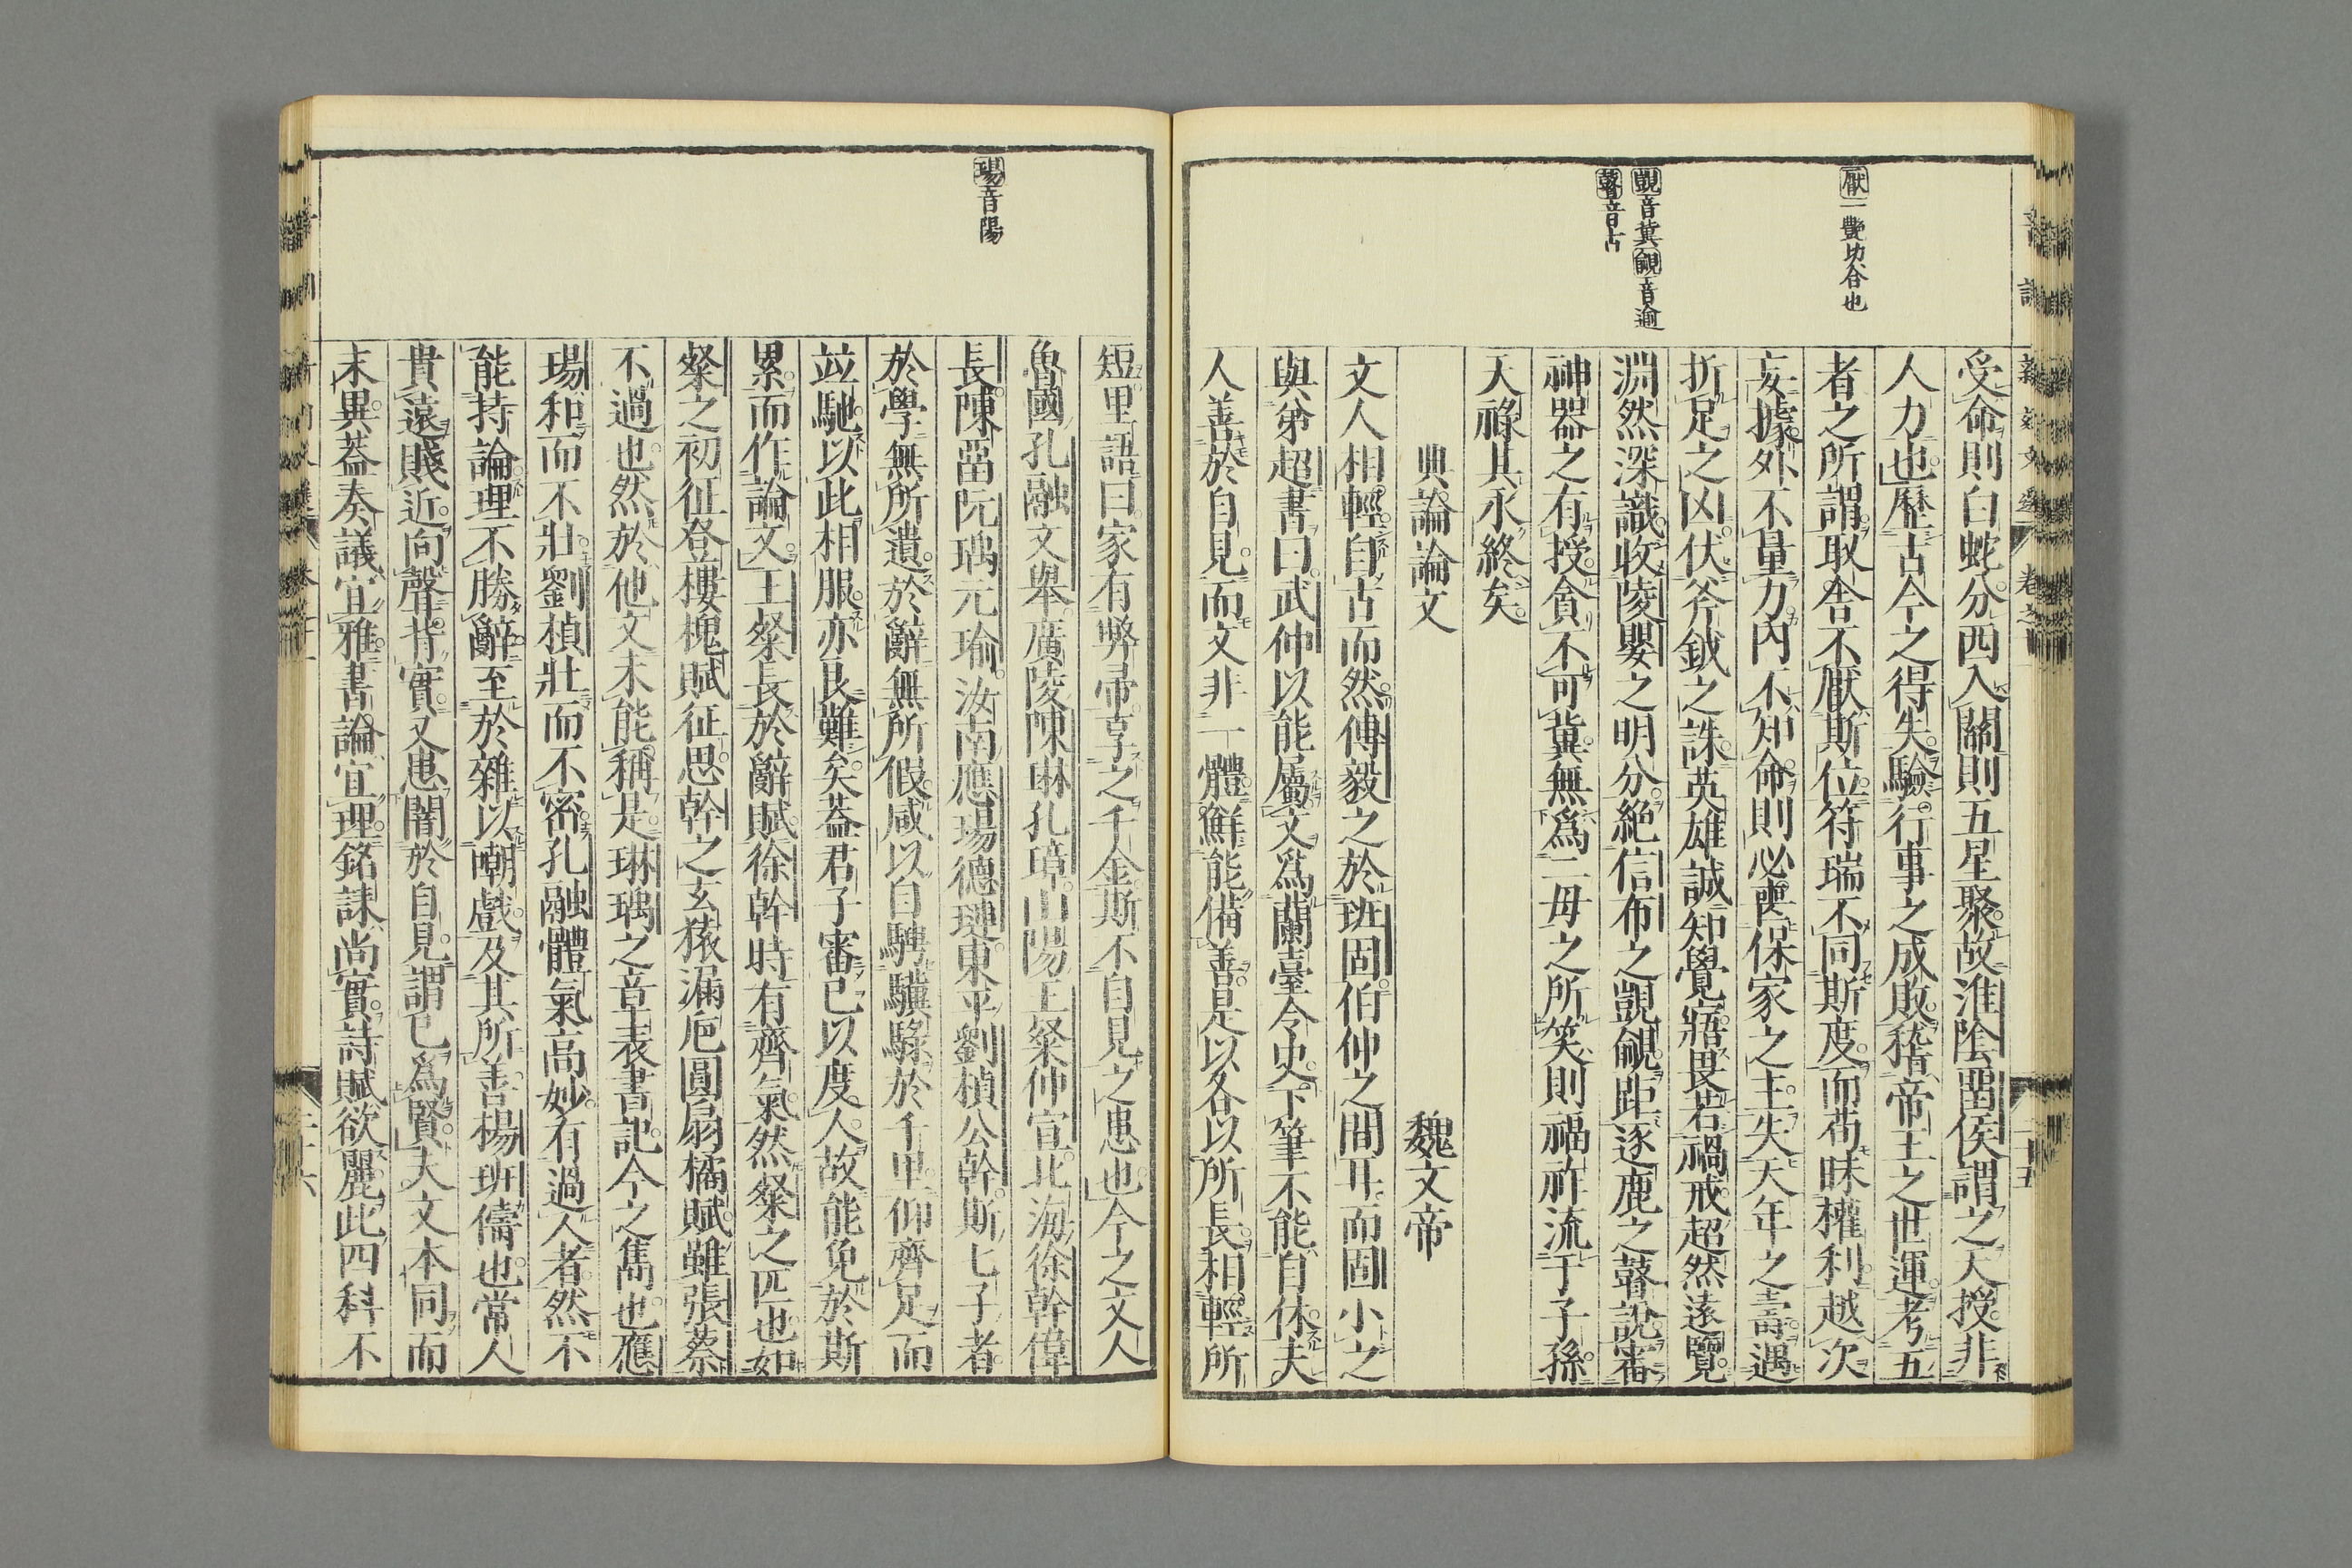 厭一艷切合也
覬音冀覦音逾
瞽音古
受命則白蛇分西入關則五星聚故淮陰畱侯謂之天授非
人力也歷古今之得失驗行事之成敗稽帝王之世運考五
者之所謂取舍不厭斯位符瑞不同斯度而苟昧權利越次
妄據外不量力內不知命則必喪保家之主失天年之壽遇
折足之凶伏斧鉞之誅英雄誠知覺寤畏若禍戒超然遠覽
淵然深識收陵嬰之明分絕信布之覬覦距逐鹿之瞽說審
神器之有授貪不可冀無為二母之所笑則福祚流于子孫
天祿其永終矣
典論論文 魏文帝
文人相輕自古而然傅毅之於班固伯仲之間耳而固小之
與弟超書曰武仲以能屬文為蘭臺令史下筆不能自休夫
人善於自見而文非一體鮮能備善是以各以所長相輕所
瑒音陽
短里語曰家有弊帚享之千金斯不自見之患也今之文人
魯國孔融文舉廣陵陳琳孔璋山陽王粲仲宣北海徐幹偉
長陳畱阮瑀元瑜汝南應瑒德璉東平劉楨公幹斯七子者
於學無所遺於辭無所假咸以自騁驥騄於千里仰齊足而
竝馳以此相服亦良難矣蓋君子審己以度人故能免於斯
累而作論文王粲長於辭賦徐幹時有齊氣然粲之匹也如
粲之初征登樓槐賦征思幹之玄猿漏卮圓扇橘賦雖張蔡
不過也然於他文未能稱是琳瑀之章表書記今之雋也應
瑒和而不壯劉楨壯而不密孔融體氣高妙有過人者然不
能持論理不勝辭至於雜以嘲戲及其所善楊班儔也常人
貴遠賤近向聲背實又患闇於自見謂己為賢夫文本同而
末異蓋奏議宜雅書論宜理銘誄尚實詩賦欲麗此四科不